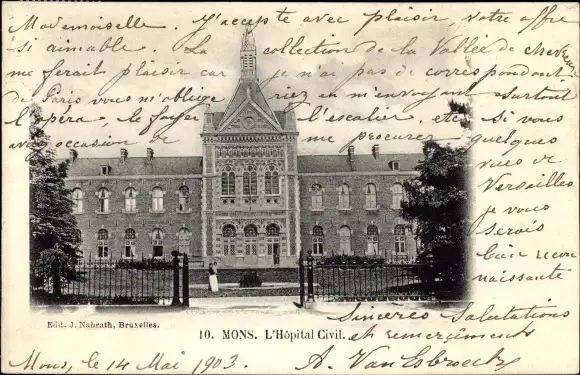 Mademoiselle. J'accepte avec plaisir, votre offre
si aimable. La collection de la Vallée de Chevreuse
me ferait plaisir car je n'ai pas de correspondant
de Paris vous m'obligeriez en m'envoyant surtout
l'opéra, le foyer l'escalier, etc, si vous
avez occasion de me procurer quelques
vues de
Versailles
je vous
serais
bien recon
naissante
Sincères Salutations
et remerciements
Edit. J. Nahrath, Bruxelles.
10. MONS. L'Hôpital Civil.
Mons, le 14 Mai 1903. A. Van Esbroeck